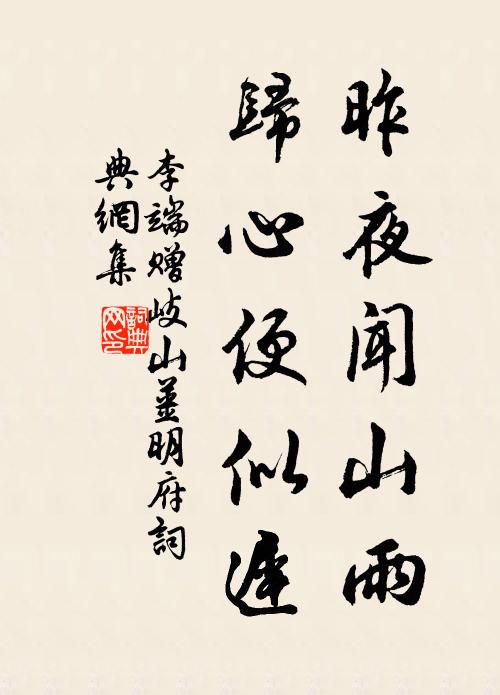 昨夜聞山雨
歸心便似遲
李端贈岐山姜明府詞
典網集
詞典
网印